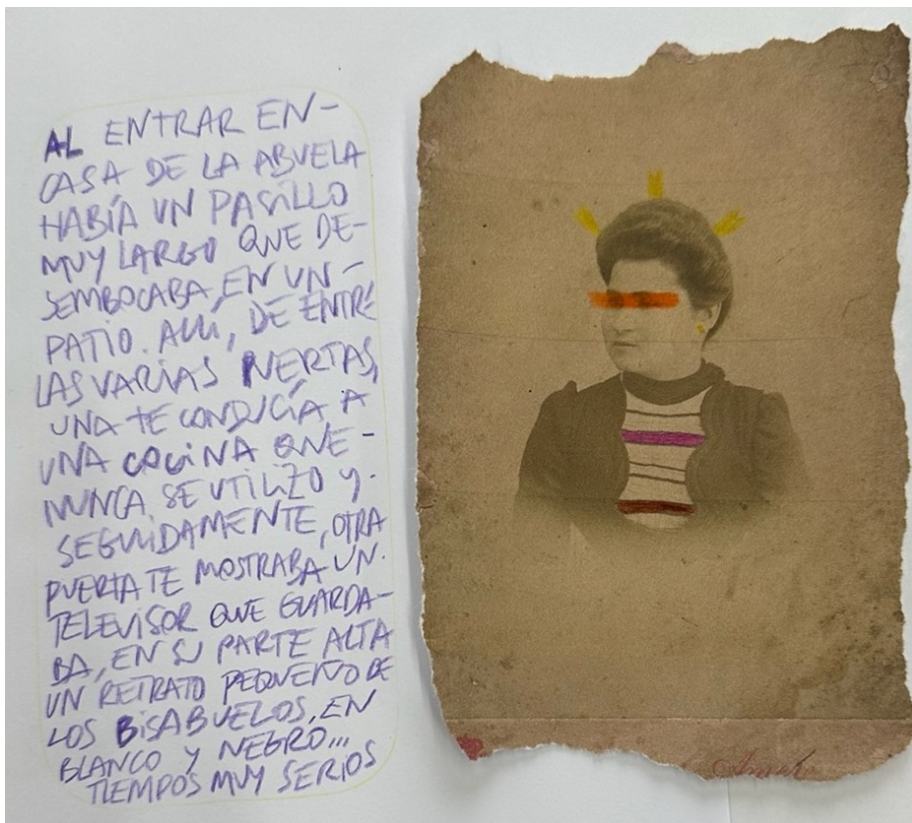 AL ENTRAR EN-
CASA DE LA ABUELA
HABÍA UN PASILLO
MUY LARGO QUE DE-
SEMBOCABA, EN UN-
PATIO. ALLI, DE ENTRE
LAS VARIAS PUERTAS,
UNA TE CONDUCÍA A
UNA COCINA QUE-
NUNCA SE UTILIZO Y.
SEGUIDAMENTE, OTRA
PUERTA TE MOSTRABA UN.
TELEVISOR QUE GUARDA-
BA, EN SU PARTE ALTA
UN RETRATO PEQUEÑO DE
LOS BISABUELOS, EN
BLANCO Y NEGRO...
TIEMPOS MUY SERIOS